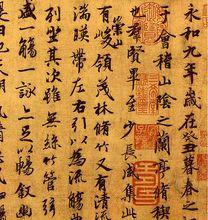 永和九年歲在癸丑暮春之初
于會稽山陰之蘭亭脩禊
也羣賢畢至少長咸集此
崇山
有峻領茂林脩竹又有清流
湍暎帶左右引以為流觴
列坐其次雖無絲竹管
盛一觴一詠亦足以暢叙幽
是日也